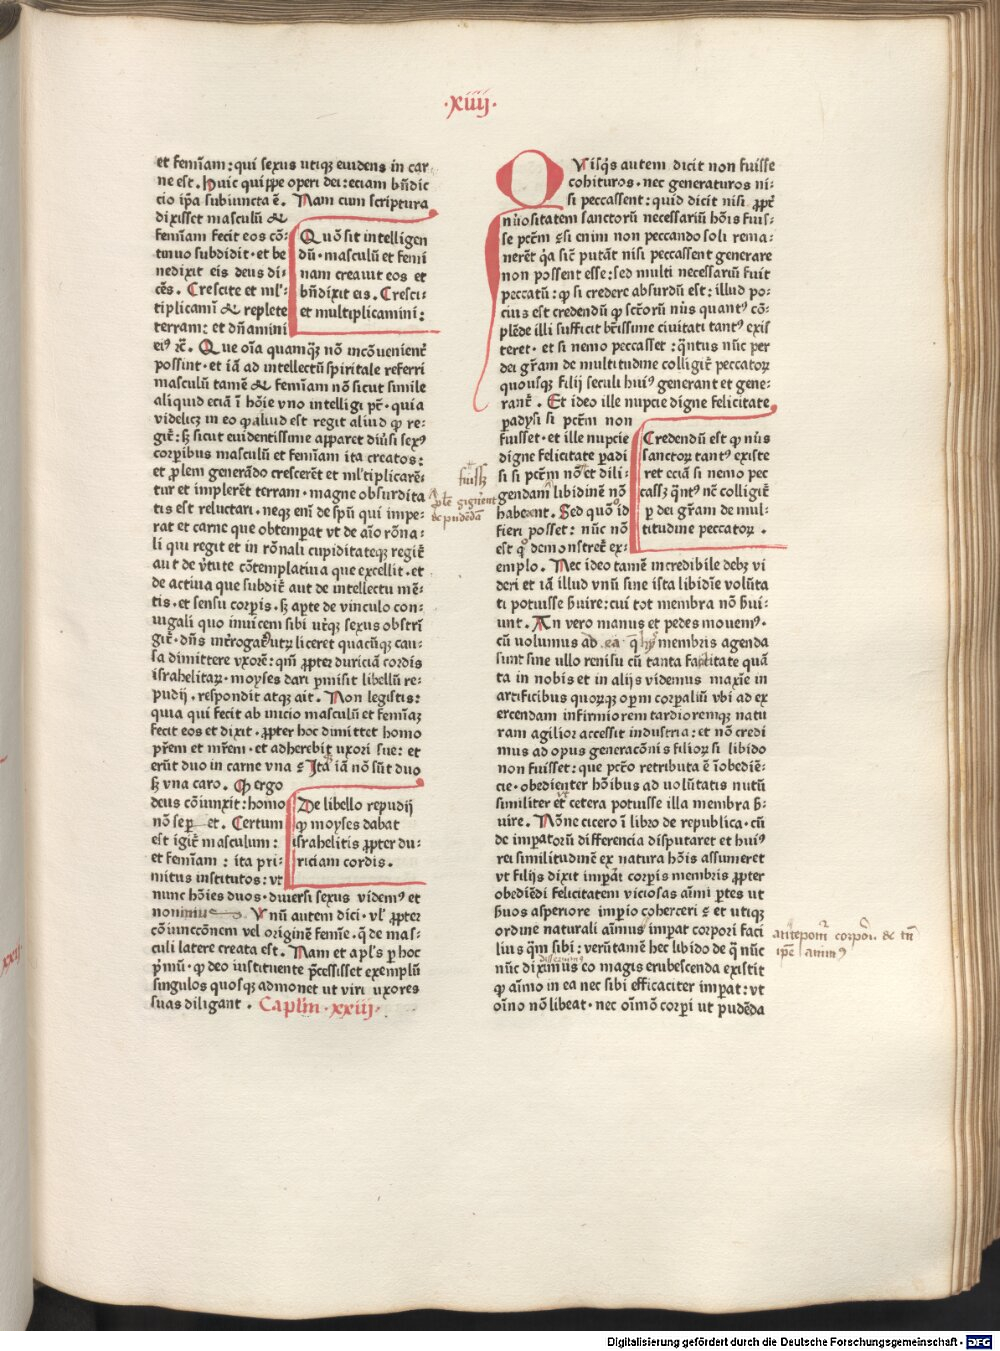 ·xiiij·
et femīam: qui sexus utiqȝ euidens in car
ne est. Huic quippe operi dei: eciam bn̄dic
cio ip̄a subiuncta ē. Nam cum scriptura
dixisset masculū &
femīam fecit eos cō-
tinuo subdidit · et be
nedixit eis deus di-
cēs. Crescite et ml'-
tiplicamī & replete
terram: et dn̄amini
Quō sit intelligen
dū · masculū et femi
nam creauit eos et
bn̄dixit eis. Cresci-
te et multiplicamini:
ei⁹ ⁊c̄. Que oīa quamqȝ nō incōuenient̄
possint · et iā ad intellectū spiritale referri
masculū tamē & femīam nō sicut simile
aliquid eciā ī hoīe vno intelligi pt̄ · quia
videlicȝ in eo ꝙ aliud est regit aliud ꝙ re-
git̄: sȝ sicut euidentissime apparet diūsi sex⁹
corꝑibus masculū et femīam ita creatos:
et ꝓlem generādo crescerēt et ml'tiplicarē-
tur et implerēt terram · magne absurdita
tis est reluctari · neqȝ enī de spū qui impe-
rat et carne que obtemꝑat vt de aīo rōna-
li qui regit et in rōnali cupiditateqȝ regit̄
aut de v̄tute cōtemplatiua que excellit · et
de actiua que subdit̄ aut de intellectu mē-
tis · et sensu corꝑis · sȝ aꝑte de vinculo con-
iugali quo inuicem sibi ut̄qȝ sexus obstrī
git̄ · dn̄s int̄rogat⁹ utꝝ liceret quacūqȝ cau-
sa dimittere vxorē: qm̄ ꝓpter duriciā cordis
israhelitaꝝ · moyses dari ꝑmisit libellū re-
pudij · respondit atqȝ ait. Non legistis:
quia qui fecit ab inicio masculū et femīaȝ
fecit eos et dixit · ꝓpter hoc dimittet homo
pr̄em et mr̄em · et adherebit uxori sue: et
erūt duo in carne vna ⁊ Ita iā nō sūt duo
sȝ vna caro. Qd̄ ergo
deus cōiunxit: homo
nō seꝑ et. Certum
est igit̄ masculum:
et femīam: ita pri-
mitus institutos: vt
De libello repudij
ꝙ moyses dabat
israhelitis ꝓpter du-
riciam cordis.
nunc hōies duos · diuersi sexus videm⁹ et
nomīus Vnū autem dici · vl' ꝓpter
cōiunccōnem vel originē femīe · q̄ de mas-
culi latere creata est. Nam et apl's ꝑ hoc
p̄mū · ꝙ deo instituente p̄cessisset exemplū
singulos quosqȝ admonet ut viri uxores
suas diligant. Capl'm · xxiij·
Quisq̄s autem dicit non fuisse
cohituros · nec generaturos ni-
si peccassent: quid dicit nisi ꝓpt̄
nūositatem sanctorū necessariū hōis fuis-
se pctm̄ ⁊ si enim non peccando soli rema-
nerēt q̄a sic̄ putāt nisi peccassent generare
non possent esse: sed multi necessariū fuit
peccatū: ꝙ si credere absurdū est: illud po-
cius est credendū ꝙ sctorū nūs quant⁹ cō-
plēde illi sufficit br̄issime ciuitati tant⁹ exis
teret · et si nemo peccasset: q̄ntus nūc per
dei gr̄am de multitudine colligit̄ peccatoꝝ
quousqȝ filij seculi hui⁹ generant et gene-
rant̄. Et ideo ille nupcie digne felicitate
ꝑadysi si pctm̄ non
fuisset · et ille nupcie
digne felicitate ꝑadi
si si pctm̄ nō et dili-
gendam libidinē nō
habent. Sed quō id
fieri posset: nūc nō
est q° demonstret̄ ex-
Credendū est ꝙ nūs
sanctoꝝ tant⁹ existe
ret eciā si nemo pec
cassȝ q̄nt⁹ nc̄ colligit̄
ꝑ dei gr̄am de mul-
titudine peccatoꝝ.
fuissȝ
ꝓle gignent
de pudēda
emplo. Nec ideo tamē incredibile debȝ vi
deri et iā illud vnū sine ista libidīe volūta
ti potuisse ẜuire: cui tot membra nō ẜui-
unt. An vero manus et pedes mouem⁹·
cū uolumus ad ea q̄ hȳs membris agenda
sunt sine ullo renisu cū tanta facilitate quā
ta in nobis et in alijs videmus maxīe in
artificibus quoꝝqȝ opm̄ corꝑaliū vbi ad ex
ercendam infirmiorem tardioremqȝ natu
ram agilior accessit industria: et nō credi
mus ad opus generacōnis filioꝝ si libido
non fuisset: que pctō retributa ē īobediē-
cie · obedienter hōibus ad volūtatis nutū
similiter et cetera potuisse illa membra ẜ-
uire. Nōne cicero ī libro de republica · cū
de imꝑatorū differencia disputaret et hui⁹
rei similitudinē ex natura hōis assumeret
vt filijs dixit imꝑāt corꝑis membris ꝓpter
obediēdi felicitatem viciosas aīmi ꝑtes ut
ẜuos asperiore imꝑio coherceri ⁊ et utiqȝ
ordine naturali aīmus imꝑat corpori faci
lius q̄m sibi: verūtamē hec libido de q̄ nūc
nūc diximus eo magis erubescenda existit
ꝙ aīmo in ea nec sibi efficaciter imꝑat: vt
oīno nō libeat · nec oīmō corꝑi ut pudēda
disserimus
antepom̄ corpori · & tn̄
ip̄e anim⁹
xxij
Digitalisierung gefördert durch die Deutsche Forschungsgemeinschaft - DFG